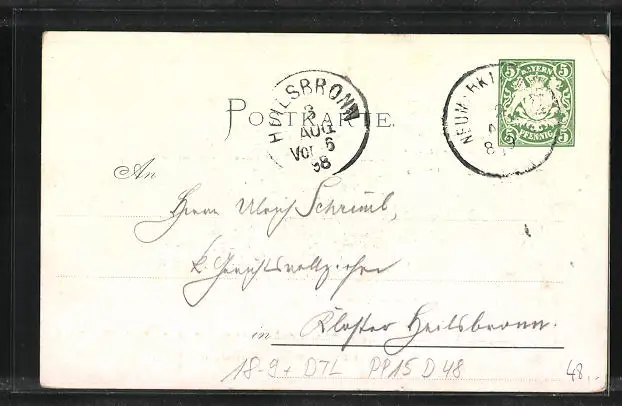 HEILSBRONN
3
AUG
VOR. 6
98
NEUMARKT
5 BAYERN 5
5 PFENNIG 5
POSTKARTE.
An
Herrn Ulrich
k. Gerichtsvollzieher
in Kloster Heilsbronn.
18-9+ DTL PP15 D48
48.-